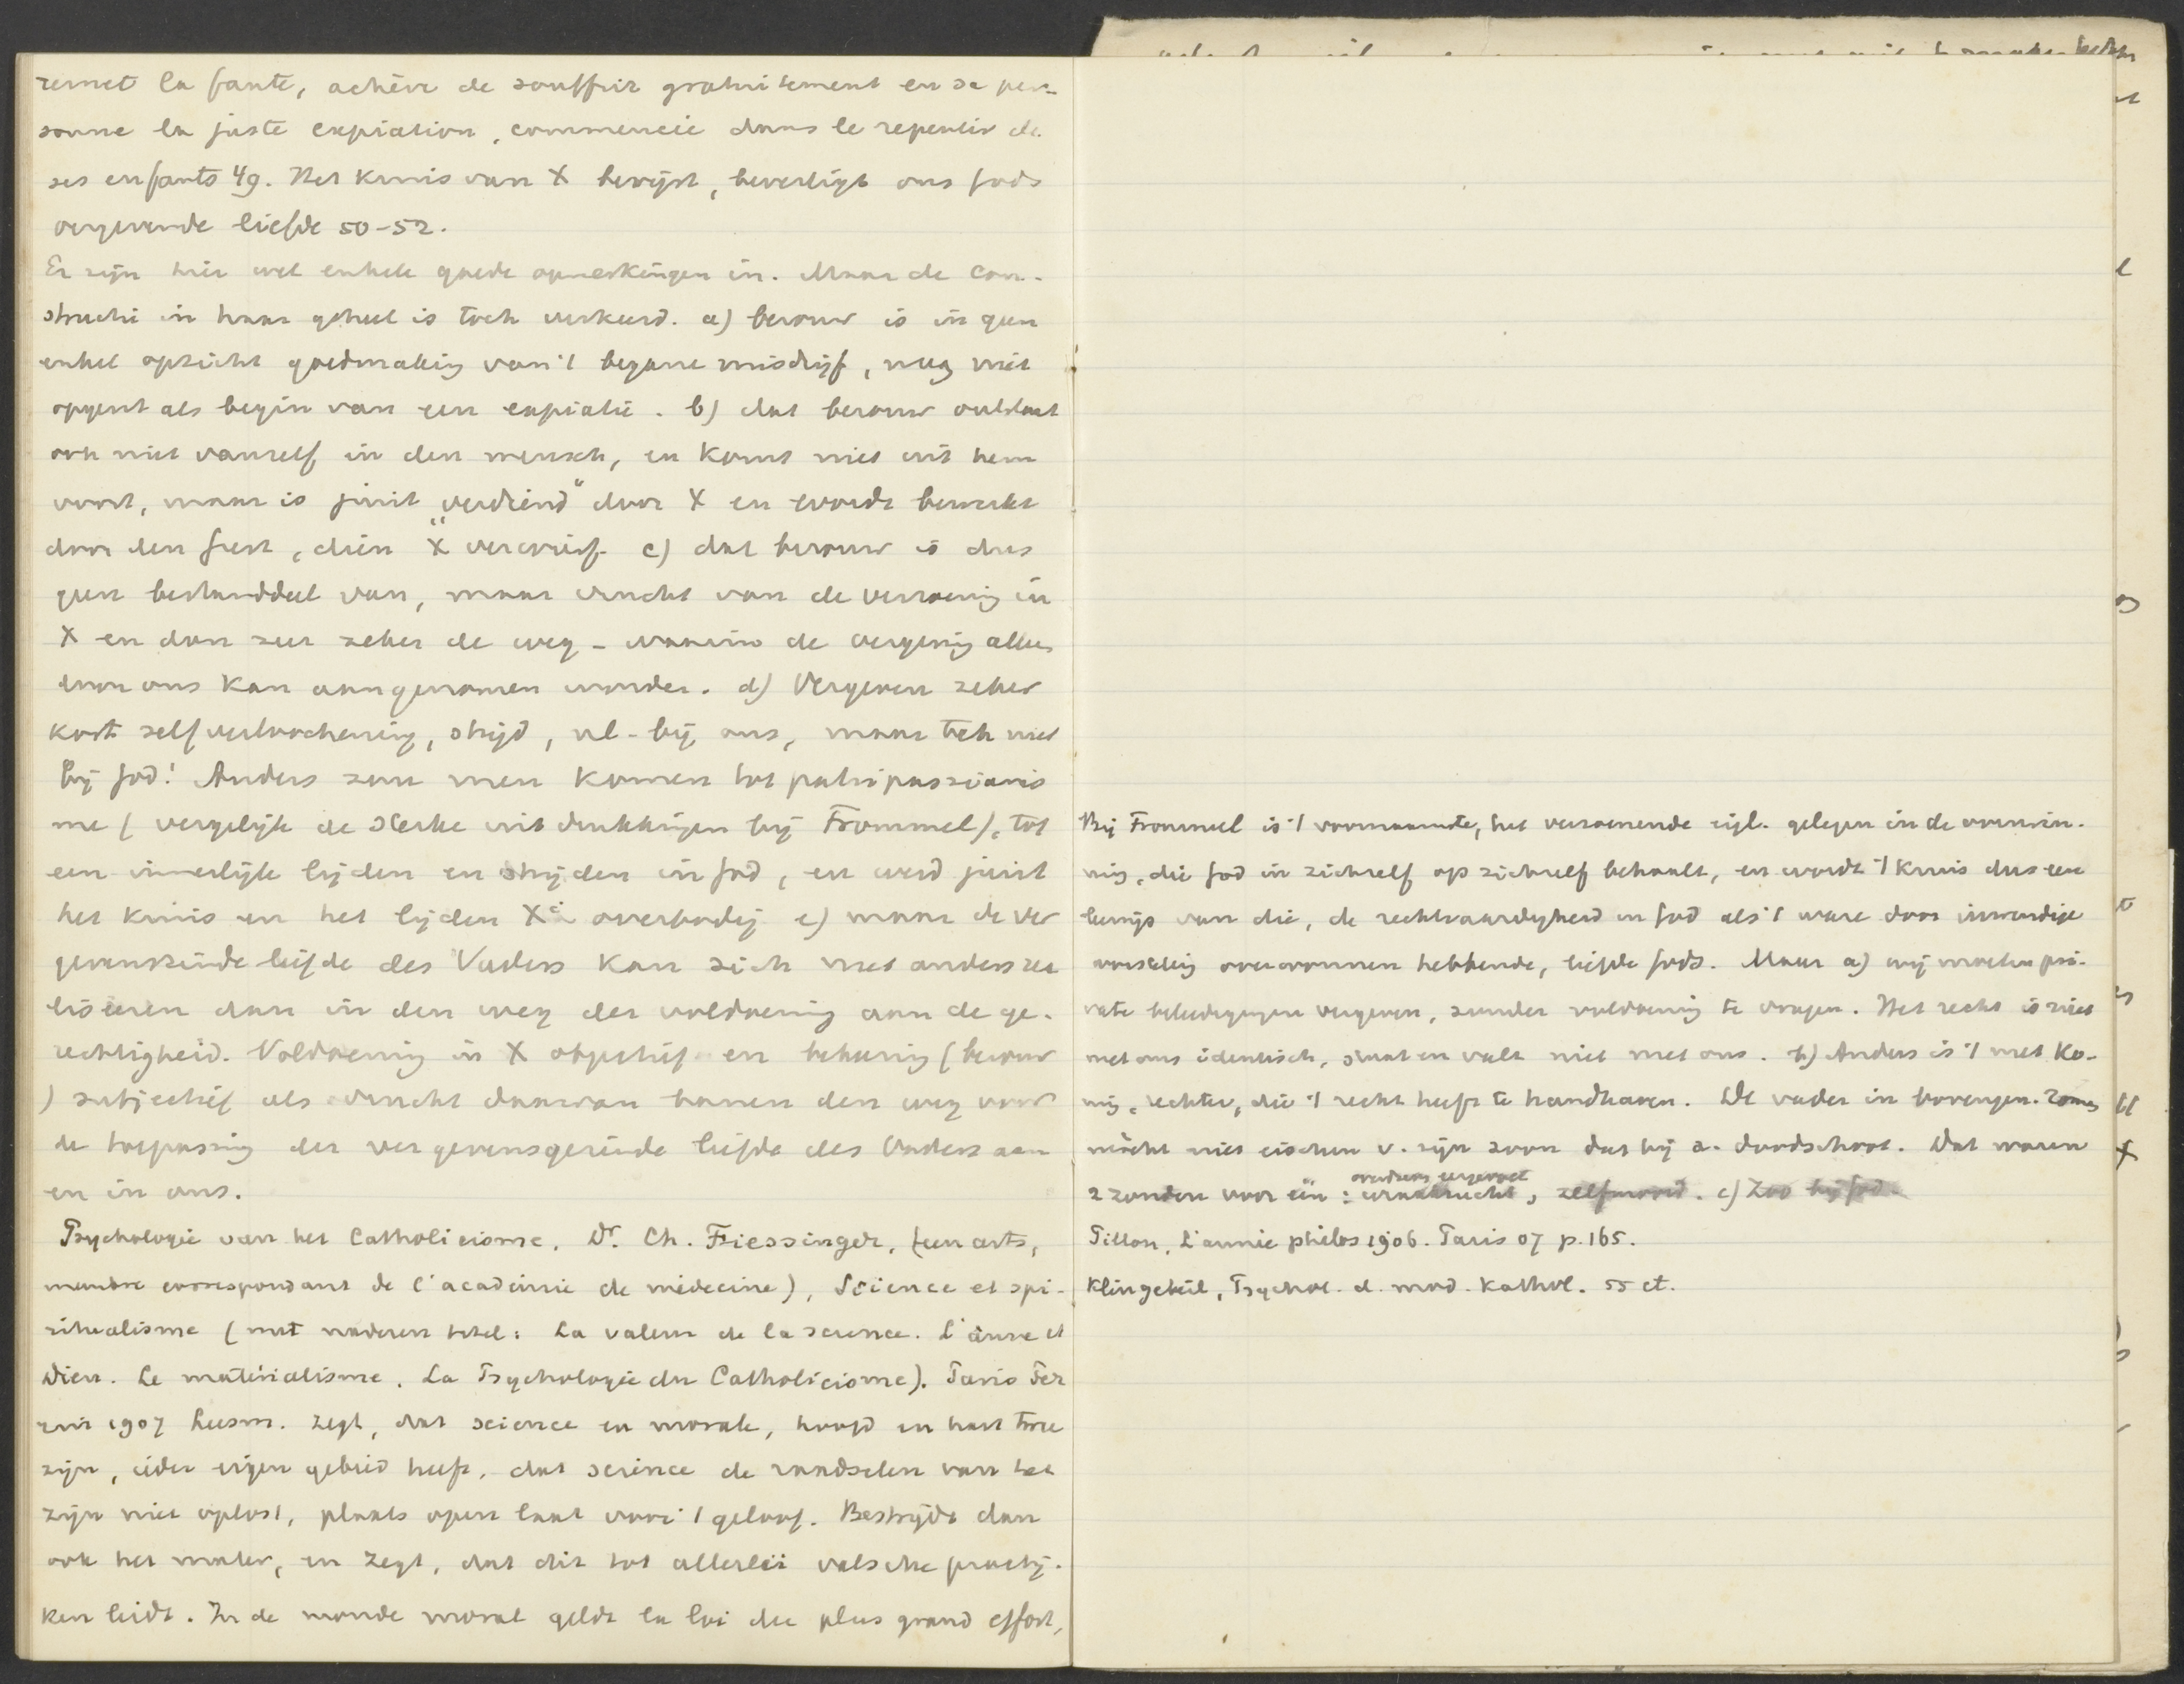 remet la faute, achève de souffrir gratuitement en sa per-
sonne la juste expiation, commencée dans le repentir de
ses enfants 49. Het kruis van X bewijst, bevestigt ons Gods
vergevende liefde 50-52.
Er zijn hier wel enkele goede opmerkingen in. Maar de con-
structie in haar geheel is toch verkeerd. a) berouw is in geen
enkel opzicht goedmaking van 't begane misdrijf, mag niet
opgevat als begin van een expiatie. b) dat berouw ontstaat
ook niet vanzelf in den mensch, en komt niet uit hem
voort, maar is juist „verdiend" door X en wordt bewerkt
door den Geest, dien X verwierf. c) dat berouw is dus
geen bestanddeel van, maar vrucht van de verzoening in
X en dan zeer zeker de weg - waarin de vergeving alleen
door ons kan aangenomen worden. d) Vergeven zeker
kost zelfverloochening, strijd, nl - bij ons, maar toch niet
bij God! Anders zou men komen tot patripassianis
me (vergelijk de sterke uitdrukkingen bij Frommel), tot
een innerlijk lijden en strijden in God, en werd juist
het kruis en het lijden Xi overbodig e) maar de ver
gevensgezinde liefde des Vaders kan zich niet anders rea
liseeren dan in den weg der voldoening aan de ge-
rechtigheid. Voldoening in X objectief en bekeering (berouw
) subjectief als vrucht daarvan banen den weg voor
de toepassing der vergevensgezinde liefde des Vaders aan
en in ons.
Psychologie van het Catholicisme. Dr. Ch. Fiessinger, (een arts,
membre correspondant de l'académie de médecine), Science et spi-
ritualisme (met nadere titel: La valeur de la science. L'âme et
Dieu. Le matérialisme. La Psychologie du Catholicisme). Paris Per
rin 1907 Leesm. zegt, dat science en morale, hoofd en hart twee
zijn, ieder eigen gebied heeft, dat science de raadselen van het
zijn niet oplost, plaats open laat voor 't geloof. Bestrijdt dan
ook het mater, en zegt, dat dit tot allerlei valsche practij-
ken leidt. In de monde moral geldt la loi du plus grand effort,
Bij Frommel is 't voornaamste, het verzoenende eigl. gelegen in de overwin-
ning, die God in zichzelf op zichzelf behaalt, en wordt 't kruis dus een
bewijs van die, de rechtvaardigheid in God als 't ware door inwendige
worsteling overwonnen hebbende, liefde Gods. Maar a) wij moeten pri-
vate beleedigingen vergeven, zonder voldoening te vragen. Het recht is niet
met ons identisch, staat en valt niet met ons. b) Anders is 't met Ko-
ning, rechter, die 't recht heeft te handhaven. De vader in bovengen. roman
mòcht niet eischen v. zijn zoon dat hij z. doodschoot. Dat waren
2 zonden voor één: , zelfmoord. c) Zoo bij God.
Pillon, L'année philos 1906. Paris 07 p. 165.
Klingebeil, Psychol. d. mod. Kathol. 55 ct.